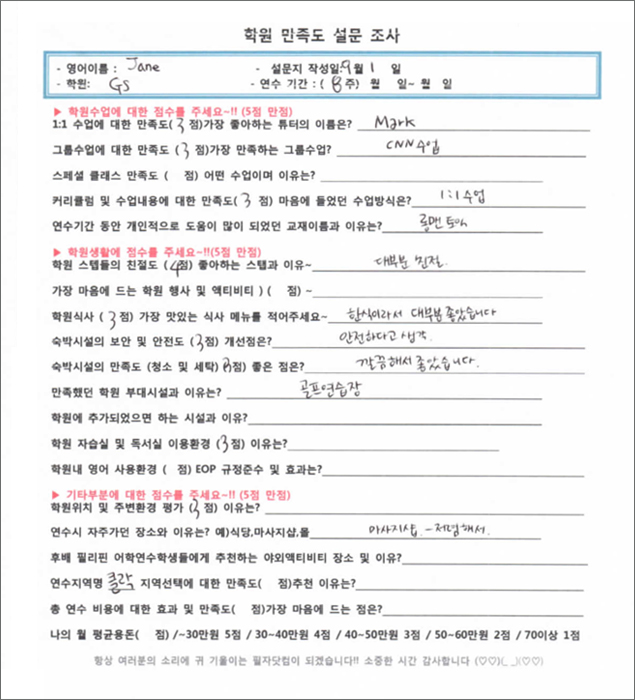 학원 만족도 설문 조사
- 영어이름 : Jane - 설문지 작성일: 9월 1 일
- 학원: GS - 연수 기간 : ( 8주) 월 일~ 월 일
▶ 학원수업에 대한 점수를 주세요~!! (5점 만점)
1:1 수업에 대한 만족도( 3 점)가장 좋아하는 튜터의 이름은? Mark
그룹수업에 대한 만족도 ( 3 점)가장 만족하는 그룹수업? CNN 수업
스페셜 클래스 만족도 ( 점) 어떤 수업이며 이유는?
커리큘럼 및 수업내용에 대한 만족도( 3 점) 마음에 들었던 수업방식은? 1:1 수업
연수기간 동안 개인적으로 도움이 많이 되었던 교재이름과 이유는?
▶ 학원생활에 점수를 주세요~!!(5점 만점)
학원 스텝들의 친절도 ( 4점) 좋아하는 스탭과 이유~ 대부분 친절.
가장 마음에 드는 학원 행사 및 액티비티 ) ( 점) ~
학원식사 ( 3점) 가장 맛있는 식사 메뉴를 적어주세요~ 한식이라서 대부분 좋았습니다
숙박시설의 보안 및 안전도 ( 3점) 개선점은? 안전하다고 생각.
숙박시설의 만족도 (청소 및 세탁) 3점) 좋은 점은? 깔끔해서 좋았습니다.
만족했던 학원 부대시설과 이유는? 골프연습장
학원에 추가되었으면 하는 시설과 이유?
학원 자습실 및 독서실 이용환경 ( 3점) 이유는?
학원내 영어 사용환경 ( 점) EOP 규정준수 및 효과는?
▶ 기타부분에 대한 점수를 주세요~!! (5점 만점)
학원위치 및 주변환경 평가 ( 3점) 이유는?
연수시 자주가던 장소와 이유는? 예)식당,마사지샵,몰 마사지샵. - 저렴해서.
후배 필리핀 어학연수학생들에게 추천하는 야외액티비티 장소 및 이유?
연수지역명 클락 지역선택에 대한 만족도( 점)추천 이유는?
총 연수 비용에 대한 효과 및 만족도( 점)가장 마음에 드는 점은?
나의 월 평균용돈( 점) /~30만원 5점 / 30~40만원 4점 / 40~50만원 3점 / 50~60만원 2점 / 70이상 1점
항상 여러분의 소리에 귀 기울이는 필자닷컴이 되겠습니다!! 소중한 시간 감사합니다 (♡♡)(_ _)(♡♡)